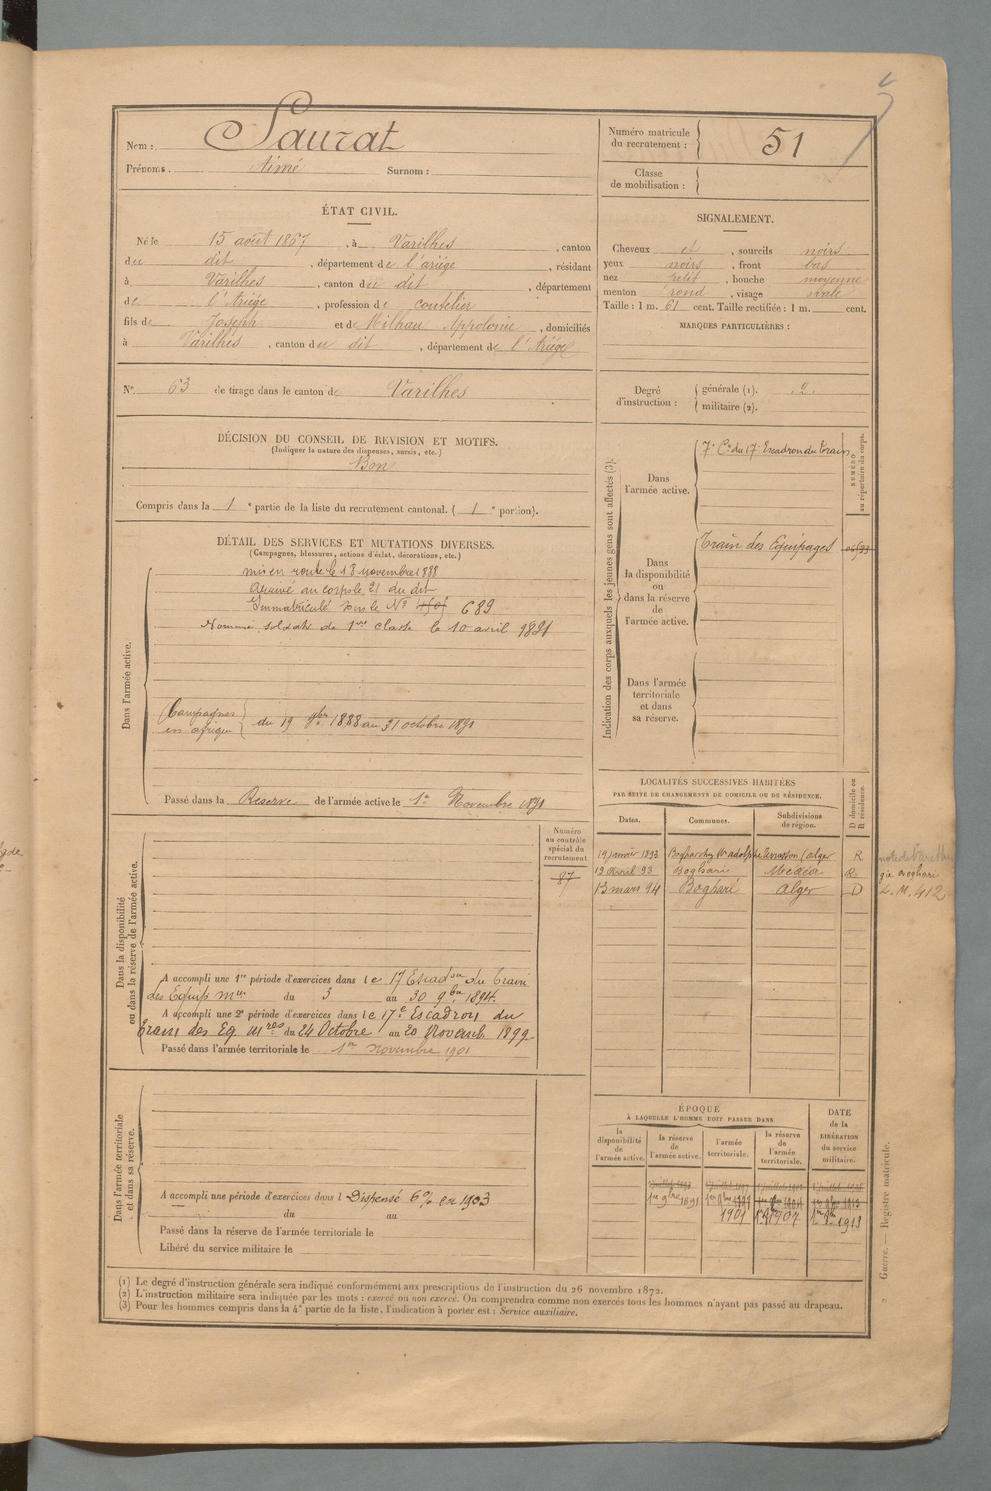 Nom : Saurat
Prénoms. Aimé Surnom :
Numéro matricule du recrutement : 51
Classe de mobilisation :
ÉTAT CIVIL.
Né le 15 août 1867, à Varilhes, canton
du dit, département de l'ariége, résidant
à Varilhes, canton du dit, département
de l'Ariége, profession de coutelier
fils de Joseph et de Milhau Appolonie, domiciliés
à Varilhes, canton du dit, département de l'Ariége
SIGNALEMENT.
Cheveux et, sourcils noirs
yeux noirs, front bas
nez petit, bouche moyenne
menton rond, visage ovale
Taille : 1 m. 61 cent. Taille rectifiée : 1 m. cent.
MARQUES PARTICULIÈRES :
N° 63 de tirage dans le canton de Varilhes
Degré d'instruction : générale (1). 2.
militaire (2).
DÉCISION DU CONSEIL DE REVISION ET MOTIFS.
(Indiquer la nature des dispenses, sursis, etc.)
Bon
Compris dans la 1e partie de la liste du recrutement cantonal. ( 1e portion).
DÉTAIL DES SERVICES ET MUTATIONS DIVERSES.
(Campagnes, blessures, actions d'éclat, décorations, etc.)
Dans l'armée active.
mis en route le 18 novembre 1888
Arrivé au corps le 21 du dit
Immatriculé sous le N° 689
Nommé soldat de 1re classe le 10 avril
Campagnes en afrique du 19 9bre 1888 au 31 octobre 1891
Passé dans la Reserve de l'armée active le 1er Novembre 1891
Indication des corps auxquels les jeunes gens sont affectés (3).
NUMÉRO au répertoire du corps.
Dans l'armée active.
7e Cie du 17e Escadron du train
Dans la disponibilité ou dans la réserve de l'armée active.
Train des Equipages
Dans l'armée territoriale et dans sa réserve.
LOCALITÉS SUCCESSIVES HABITÉES
PAR SUITE DE CHANGEMENTS DE DOMICILE OU DE RÉSIDENCE.
D domicile ou R résidence.
Dates. Communes. Subdivisions de région.
19 janvier 1893 alger R
19 avril 93 Boghari Médéa R
13 mars 94 Boghari alger D
L. M. 412
Dans la disponibilité ou dans la réserve de l'armée active.
Numéro au contrôle spécial du recrutement
87
A accompli une 1re période d'exercices dans le 17 Escadon du train
des Equip mres du 3 au 30 9bre 1894.
A accompli une 2e période d'exercices dans le 17e Escadron du
train des Eq. mres du 24 Octobre au 20 Novemb. 1899
Passé dans l'armée territoriale le 1er novembre 1901
Dans l'armée territoriale et dans sa réserve.
A accompli une période d'exercices dans l Dispensé 6% en 1903
du au
Passé dans la réserve de l'armée territoriale le
Libéré du service militaire le
ÉPOQUE
À LAQUELLE L'HOMME DOIT PASSER DANS
DATE de la LIBÉRATION du service militaire.
la disponibilité de l'armée active. la réserve de l'armée active. l'armée territoriale. la réserve de l'armée territoriale.
1er 9bre 1891
1901 1907 1er 9bre 1913
Guerre. — Registre matricule.
(1) Le degré d'instruction générale sera indiqué conformément aux prescriptions de l'instruction du 26 novembre 1872.
(2) L'instruction militaire sera indiquée par les mots : exercé ou non exercé. On comprendra comme non exercés tous les hommes n'ayant pas passé au drapeau.
(3) Pour les hommes compris dans la 4e partie de la liste, l'indication à porter est : Service auxiliaire.